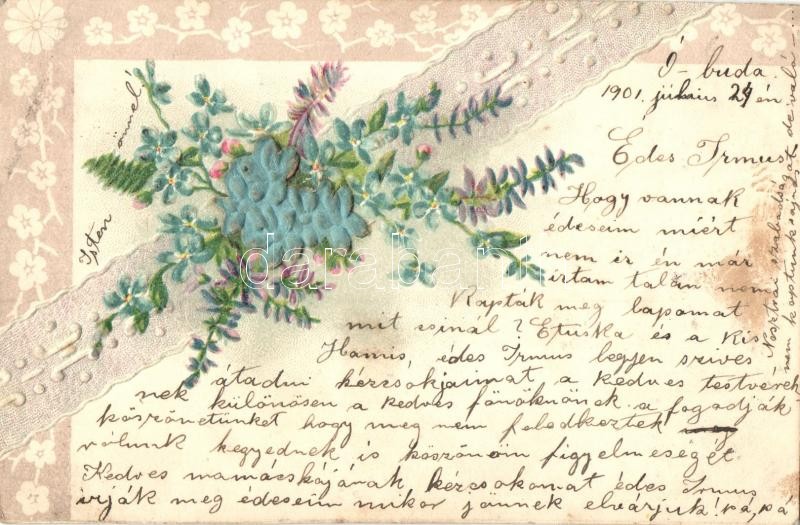 Ó-buda.
1901. július 24 én
Edes Irmus
Hogy vannak
édeseim miért
nem ir én már
irtam talán nem
Kapták meg lapomat
mit csinal? Etuska és a Kis
Hamis, édes Irmus legyen szives
átadni kézcsókjaimat a kedves testvérek
nek különösen a kedves főnöknőnek a fogadják
köszönetünket hogy meg nem feledkeztek
rólunk kegyednek is köszönöm figyelmeségét
Kedves mamácskájának kézcsokomat édes Irmus
irják meg édeseim mikor jönnek elvárjuk! pá, pá
Isten
nem kaptunk
darabanth